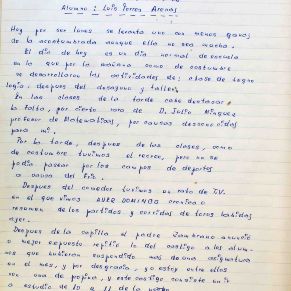 Alumno : Luis Torres Arenas
Hoy por ser lunes se levanta uno con menos ganas
de lo acostumbrado aunque ello no sea mucho.
El día de hoy es un día normal de escuela
en lo que por la mañana como de costumbre
se desarrollaron las actividades de: clase de tegno
logía, despues del desayuno y taller.
En las clases de la tarde cabe destacar
la falta, por cierto rara de D. Julio Minguez
profesor de Matematicas, por causas desconocidas
para mi.
Por la tarde, despues de las clases, como
de costumbre tuvimos el recreo, pero no se
podia pasear por los campos de deportes
a causa del frio.
Despues del comedor tuvimos un rato de T.V.
en el que vimos AYER DOMINGO cronica o
resumen de los partidos y corridas de toros habidas
ayer.
Despues de la capilla el padre Zambrano anunció
o mejor expuesto repitio lo del castigo a los alum-
nos que hubieran suspendido mas de una asignatura
en el mes, y por desgracia, yo estoy entre ellos
con una de propina, y este castigo consiste en ir
a estudio de 10 a 11 de la noche